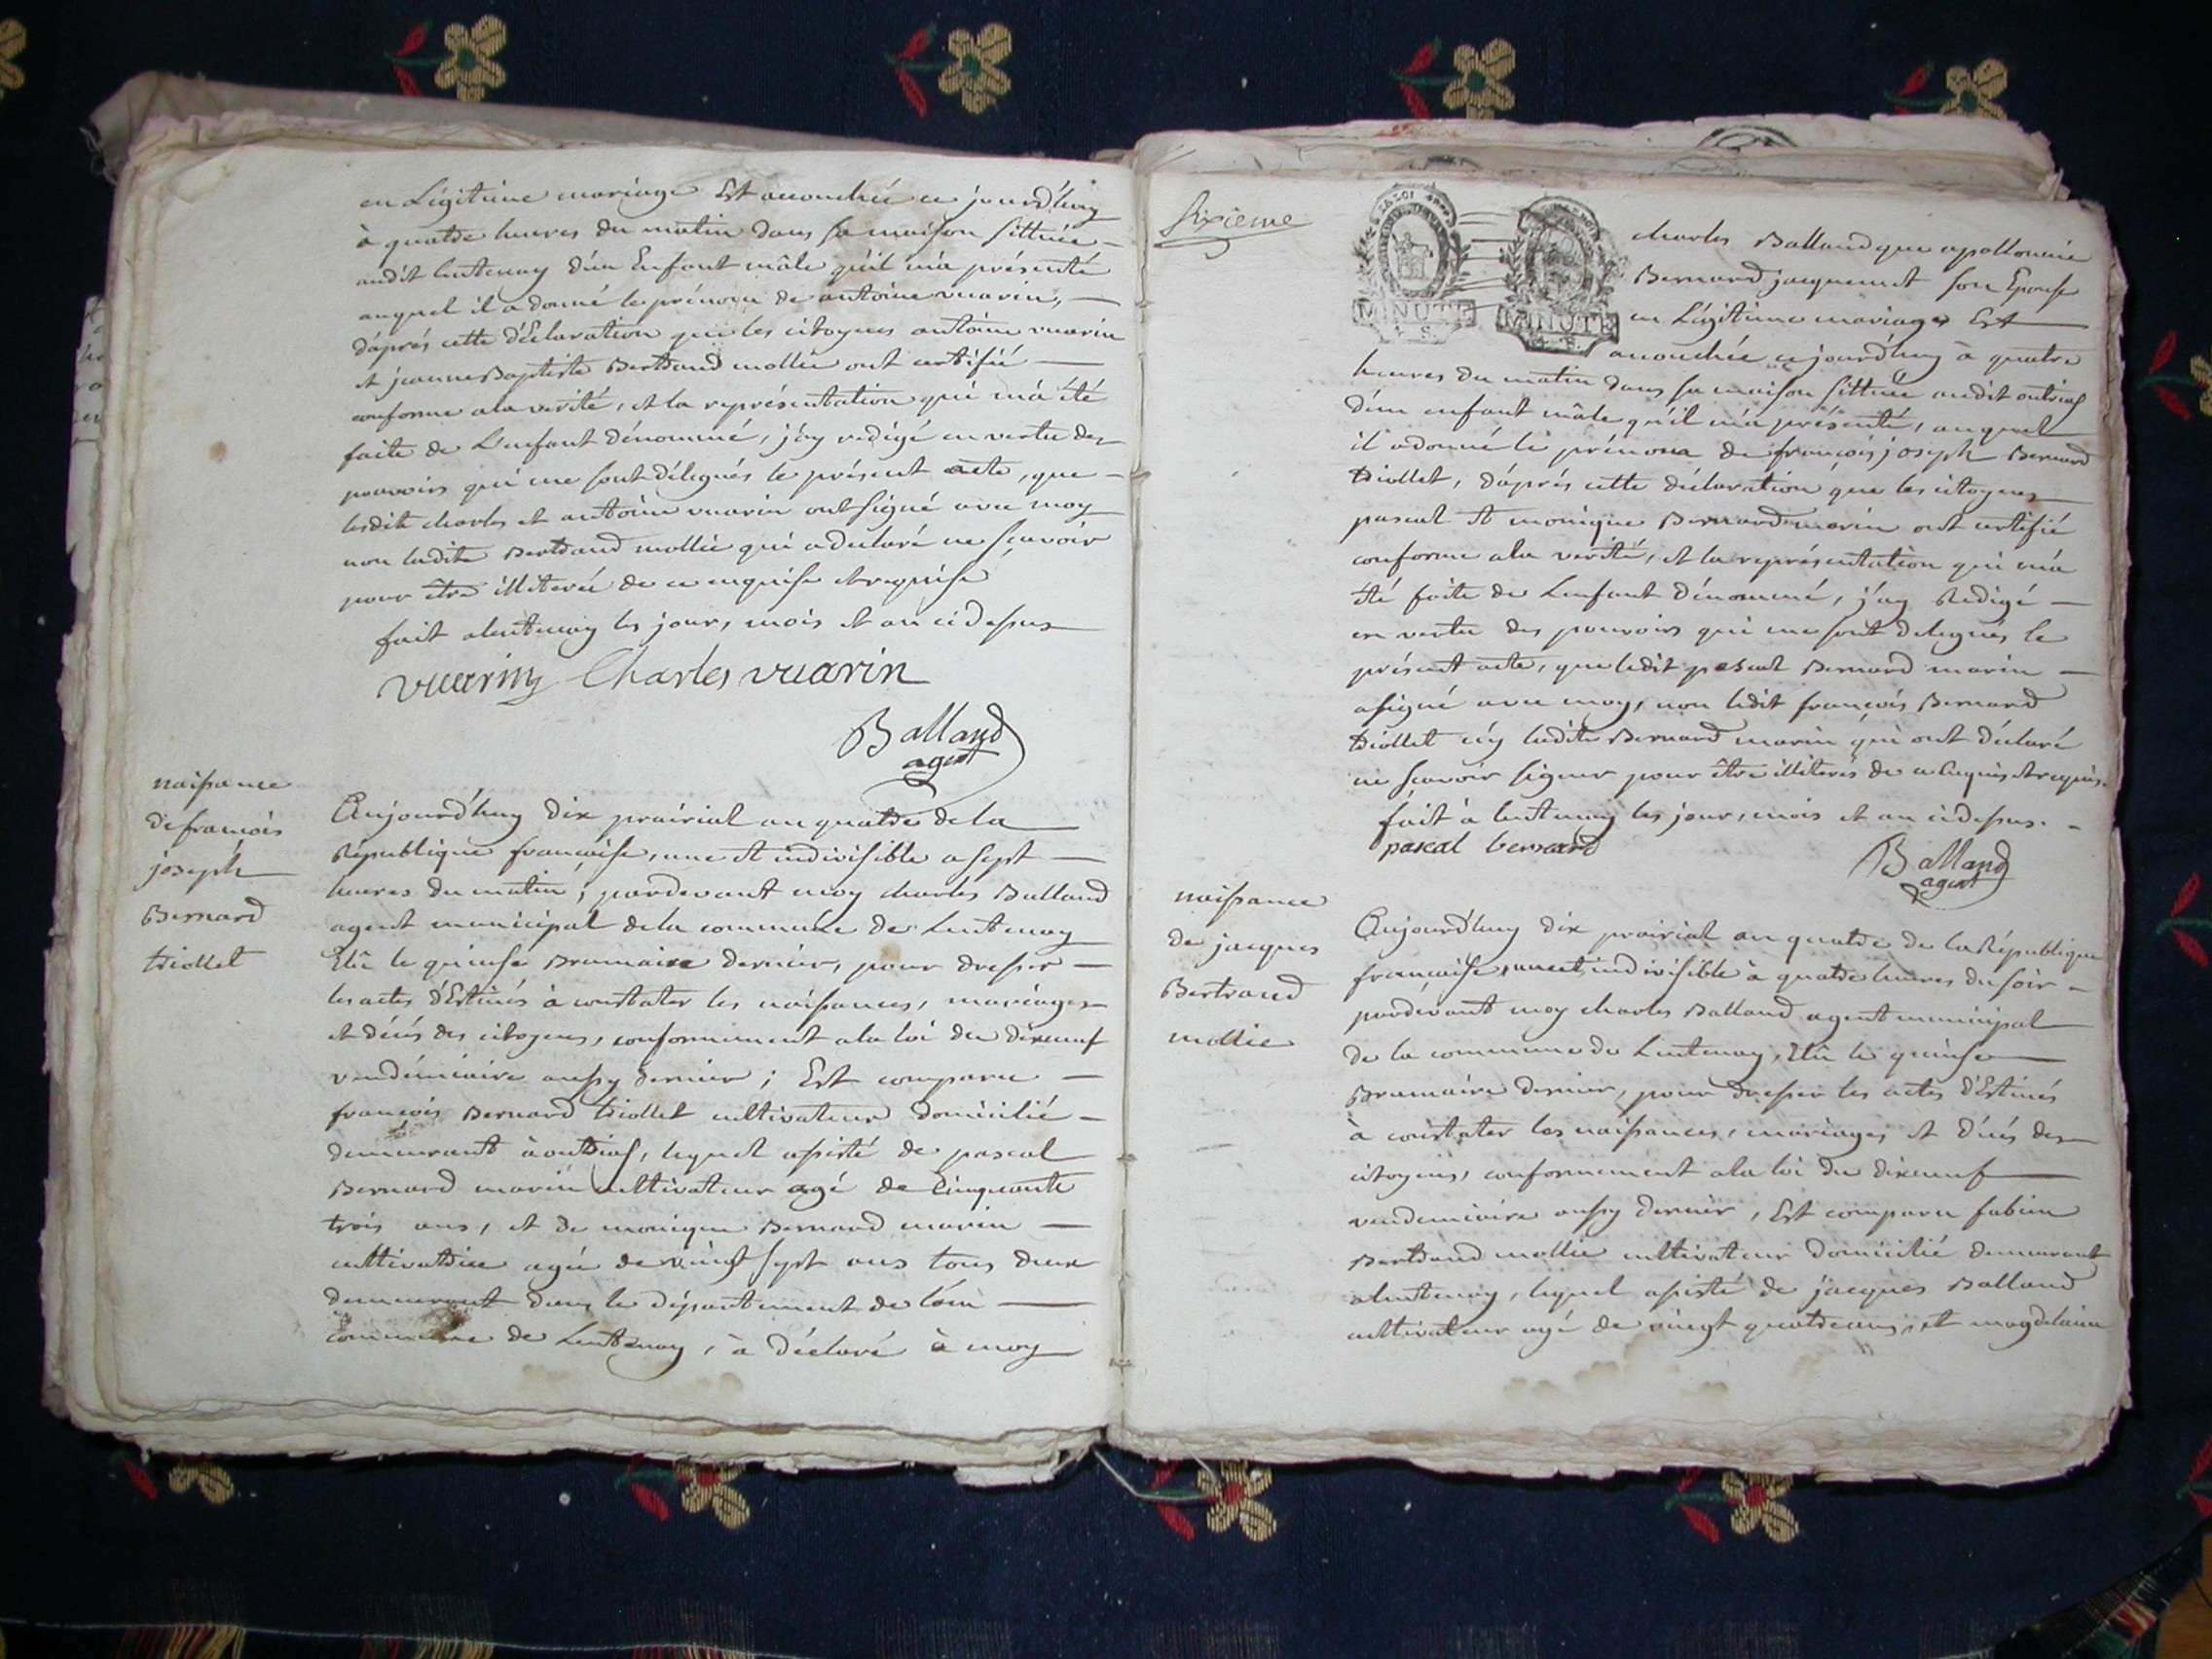 en Légitime mariage Est accouchée ce jourd'huy
à quatre heures du matin dans sa maison sittuée
audit lentenay d'un Enfant mâle qu'il m'a présenté
auquel il a donné le prénom de antoine vuarin,
d'aprés cette déclaration que les citoyens antoine vuarin
et jeanne Baptiste Bertrand mollie ont certifié
conforme a la verité, et la représentation qui m'a été
faite de L'enfant dénommé, j'ay redigé en vertu des
pouvoirs qui me sont délegués le présent acte, que
lesdits charles et antoine vuarin ont signé avec moy
non ladite Bertrand mollie qui a declaré ne sçavoir
pour être illiterée de ce enquise et requise
fait a lentenay les jour, mois et an ci dessus
vuarin Charles vuarin
Balland
agent
naissance
de françois
joseph
Bernard
triollet
Aujourd'huy dix prairial an quatre de la
République françoise, une et indivisible a sept
heures du matin; pardevant moy charles Balland
agent municipal de la commune de Lentenay
Elû le quinse Brumaire dernier, pour dresser
les actes d'Estinés à constater les naissances, mariages
et décès des citoyens, conformement a la loi du dixneuf
vendémiaire aussy dernier; Est comparu
françois Bernard triollet cultivateur domicilié
demeurant à outriaf, lequel assisté de pascal
Bernard marin cultivateur agé de Cinquante
trois ans, et de monique Bernard marin
cultivatrice agée de vingt sept ans tous deux
demeurant dans le département de l'ain
commune de Lentenay, à déclaré à moy
Sixieme
MINUTE
MINUTE
charles Balland que apollonie
Bernard jacquemet son Epouse
en Légitime mariage Est
accouchée ce jourd'huy à quatre
heures du matin dans sa maison sittuée audit outriaf
d'un enfant mâle qu'il m'a présenté, auquel
il a donné le prénom de françois joseph Bernard
triollet, d'aprés cette déclaration que les citoyens
pascal et monique Bernard marin ont certifié
conforme a la verité, et la représentation qui m'a
été faite de L'enfant dénommé, j'ay Redigé
en vertu des pouvoirs qui me sont delegués le
présent acte, que ledit pascal Bernard marin
a signé avec moy, non ledit françois Bernard
triollet n'y ladite Bernard marin qui ont déclaré
ne sçavoir signer pour être illiterés de ce Enquis et requis.
fait à lentenay les jour, mois et an ci dessus.
pascal bernard
Balland
agent
naissance
de jacques
Bertrand
mollie
Aujourd'huy dix prairial an quatre de la République
françoise, une et indivisible à quatre heures du soir
pardevant moy charles Balland agent municipal
de la commune de Lentenay, Elû le quinse
Brumaire dernier, pour dresser les actes d'Estinés
à constater les naissances, mariages et décès des
citoyens, conformement a la loi du dixneuf
vendemiaire aussy dernier, Est comparu fabien
Bertrand mollie cultivateur domicilié demeurant
a lentenay, lequel assisté de jacques Balland
cultivateur agé de vingt quatre ans, et magdelaine